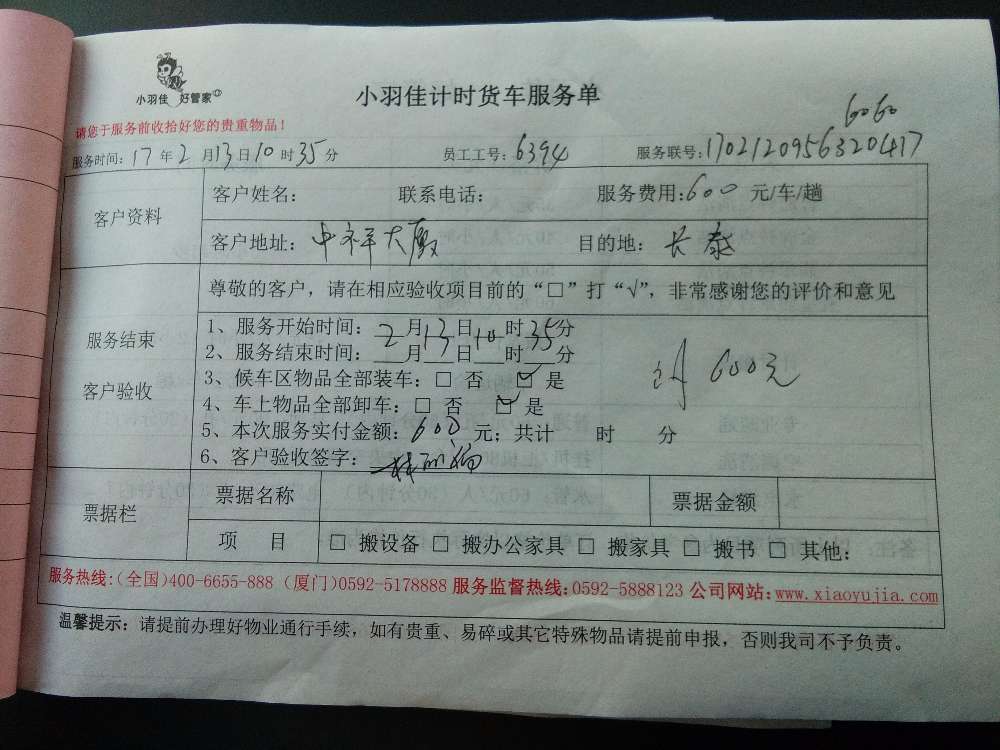 小羽佳 好管家
小羽佳计时货车服务单
6060
请您于服务前收拾好您的贵重物品！
服务时间：17年2月13日10时35分 员工工号：6394 服务联号：1702120956320417
客户资料
客户姓名： 联系电话： 服务费用：600 元/车/趟
客户地址：中祥大厦 目的地：长泰
服务结束
客户验收
尊敬的客户，请在相应验收项目前的“□”打“√”，非常感谢您的评价和意见
1、服务开始时间：2月13日10时35分
2、服务结束时间：___月___日___时___分
3、候车区物品全部装车：□ 否 ☑ 是
4、车上物品全部卸车：□ 否 ☑ 是
5、本次服务实付金额：600 元；共计 时 分
6、客户验收签字：
600元
票据栏
票据名称 票据金额
项 目 □ 搬设备 □ 搬办公家具 □ 搬家具 □ 搬书 □ 其他：
服务热线：(全国)400-6655-888 (厦门)0592-5178888 服务监督热线：0592-5888123 公司网站：www.xiaoyujia.com
温馨提示：请提前办理好物业通行手续，如有贵重、易碎或其它特殊物品请提前申报，否则我司不予负责。